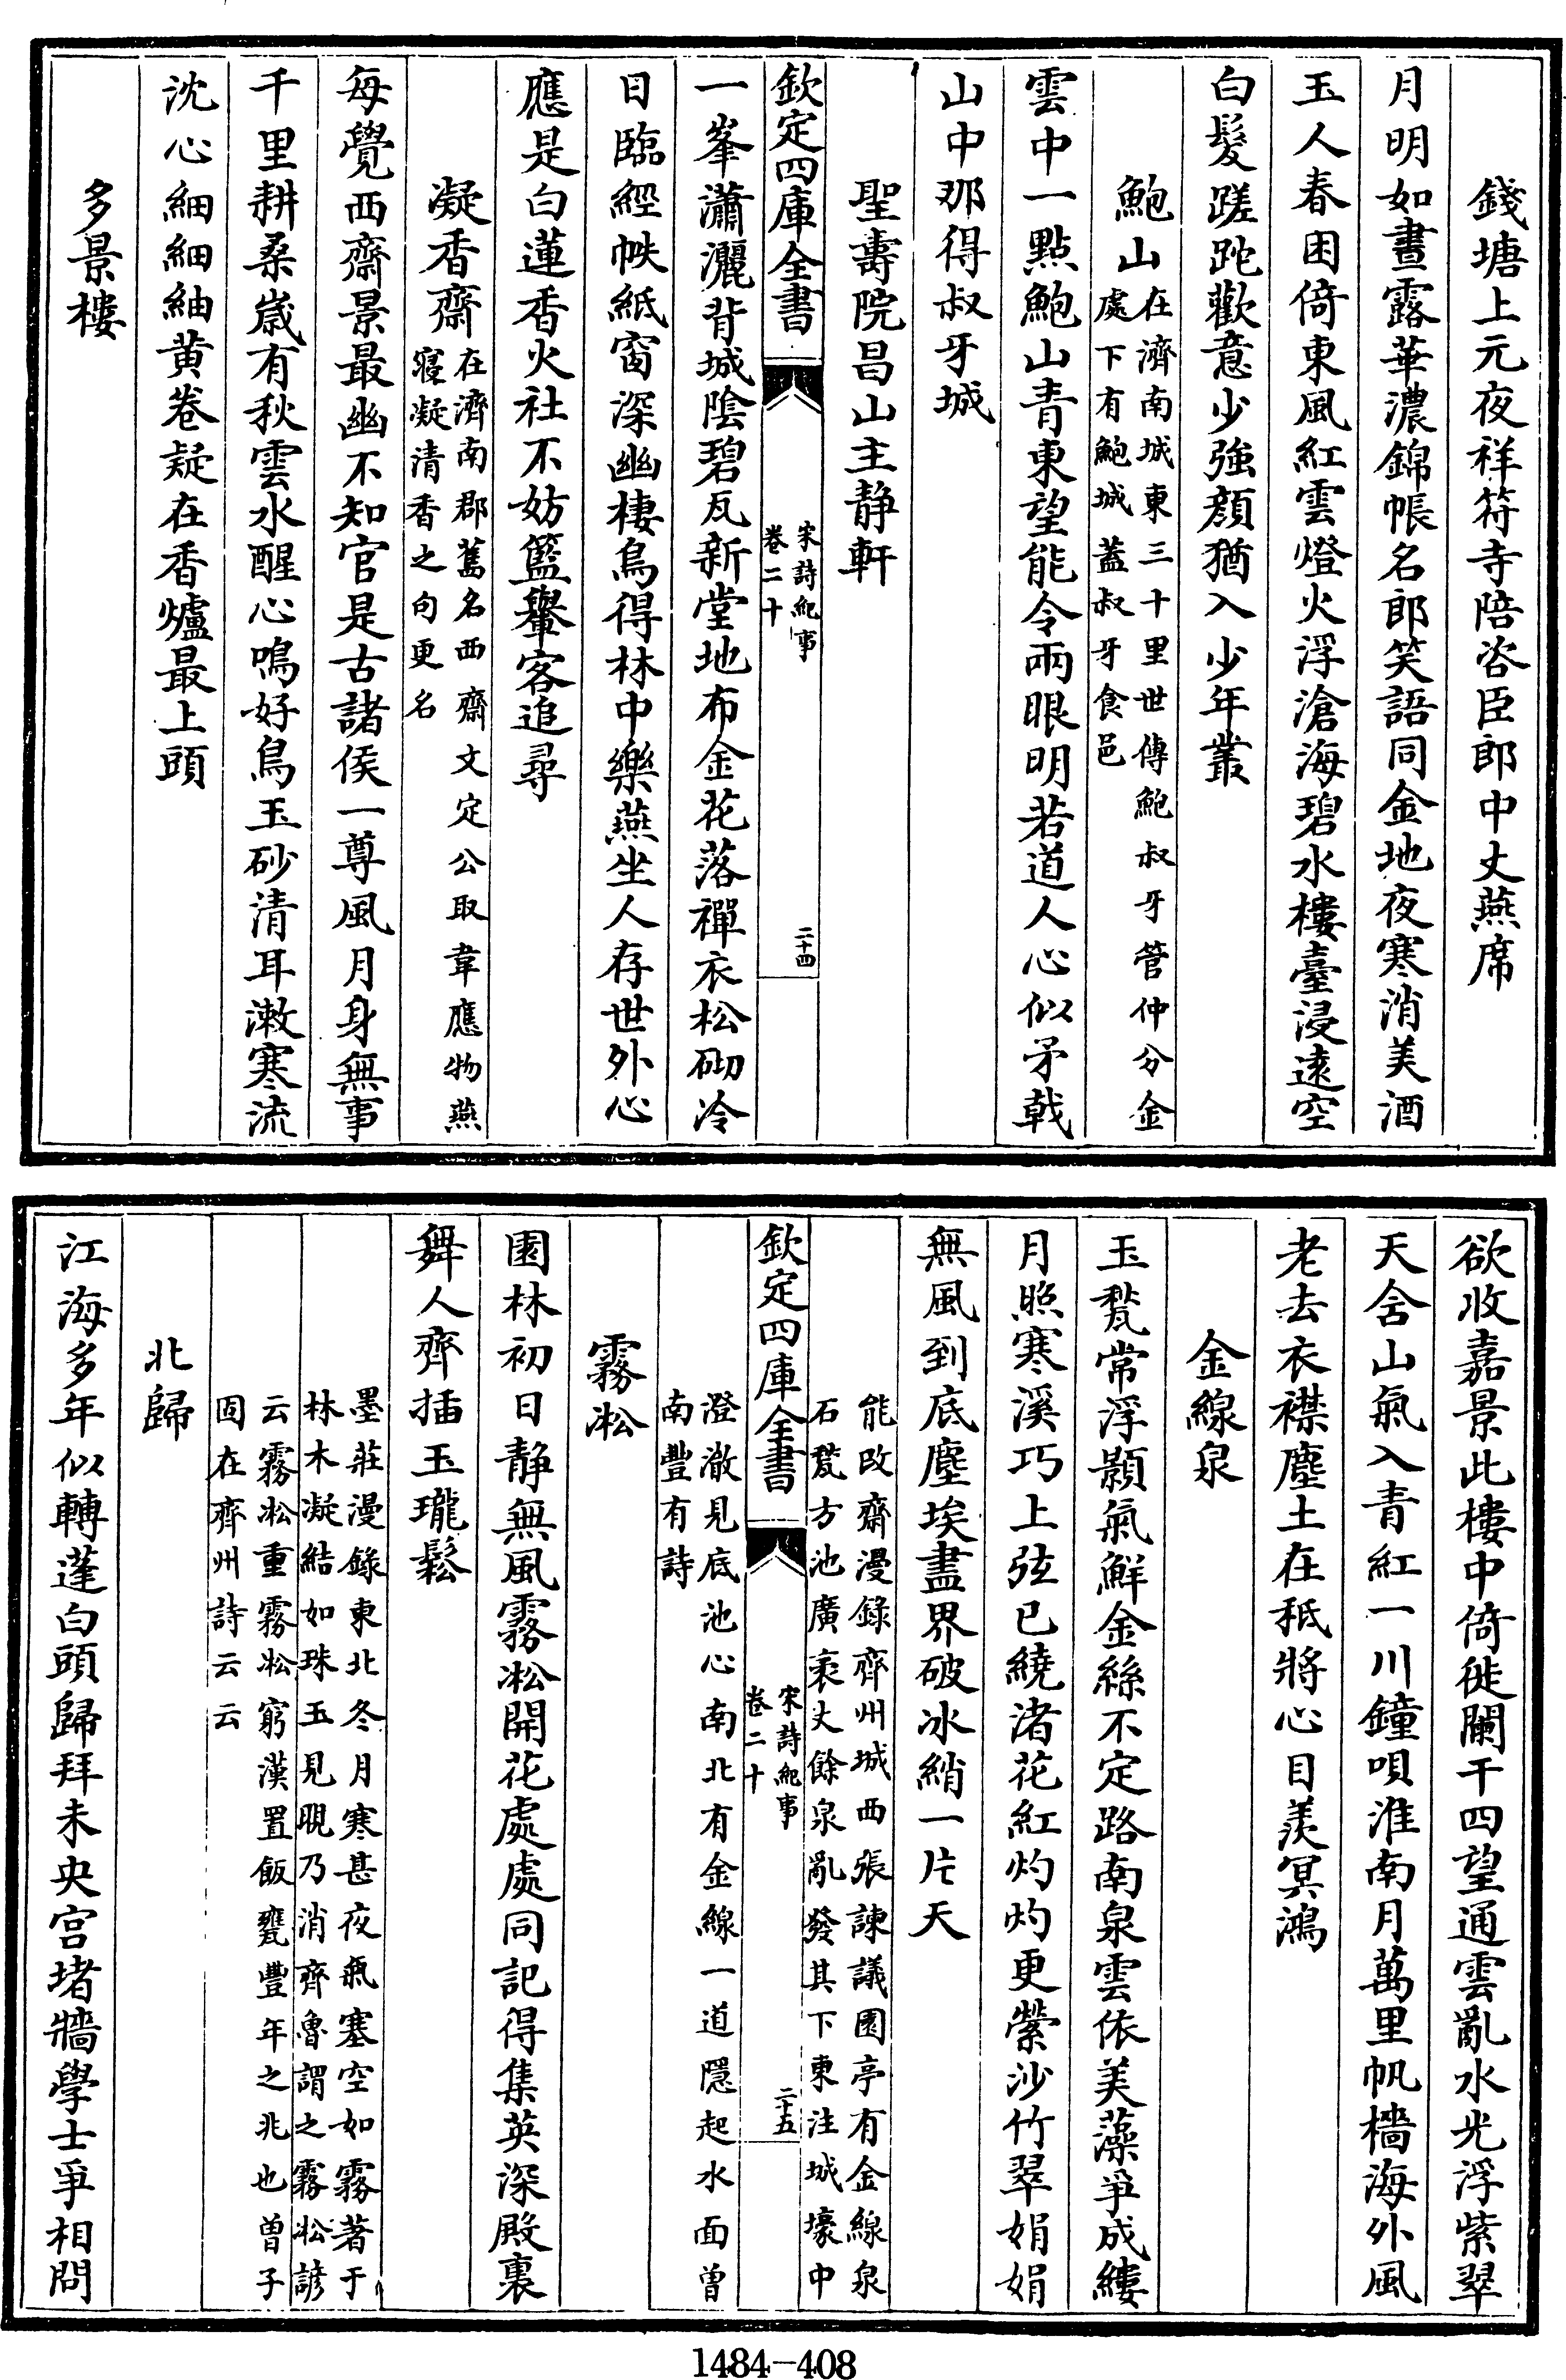 錢塘上元夜祥符寺陪咨臣郎中丈燕席
月明如晝露華濃錦帳名郎笑語同金地夜寒消美酒
玉人春困倚東風紅雲燈火浮滄海碧水樓臺浸遠空
白髮蹉跎歡意少強顔猶入少年叢
鮑山在濟南城東三十里世傳鮑叔牙管仲分金
處下有鮑城蓋叔牙食邑
雲中一點鮑山青東望能令兩眼明若道人心似矛戟
山中那得叔牙城
聖壽院昌山主静軒
欽定四庫全書
宋詩紀事
卷二十
二十四
一峯瀟灑背城陰碧瓦新堂地布金花落禪衣松砌冷
日臨經帙紙窗深幽棲鳥得林中樂燕坐人存世外心
應是白蓮香火社不妨籃轝客追尋
凝香齋在濟南郡舊名西齋文定公取韋應物燕
寢凝清香之句更名
每覺西齋景最幽不知官是古諸侯一尊風月身無事
千里耕桑歲有秋雲水醒心鳴好鳥玉砂清耳漱寒流
沈心細細紬黄卷疑在香爐最上頭
多景樓
欲收嘉景此樓中倚徙闌干四望通雲亂水光浮紫翠
天含山氣入青紅一川鐘唄淮南月萬里帆檣海外風
老去衣襟塵土在秖將心目羨冥鴻
金線泉
玉甃常浮顥氣鮮金絲不定路南泉雲依美藻爭成縷
月照寒溪巧上弦已繞渚花紅灼灼更縈沙竹翠娟娟
無風到底塵埃盡界破冰綃一片天
能改齋漫錄齊州城西張諫議園亭有金線泉
石甃方池廣袤丈餘泉亂發其下東注城壕中
欽定四庫全書
宋詩紀事
卷二十
二十五
澄澈見底池心南北有金線一道隱起水面曾
南豐有詩
霧凇
園林初日静無風霧凇開花處處同記得集英深殿裏
舞人齊插玉瓏鬆
墨莊漫錄東北冬月寒甚夜氣塞空如霧著于
林木凝結如珠玉見晛乃消齊魯謂之霧凇諺
云霧凇重霧凇窮漢置飯甕豐年之兆也曾子
固在齊州詩云云
北歸
江海多年似轉蓬白頭歸拜未央宫堵牆學士爭相問
1484-408